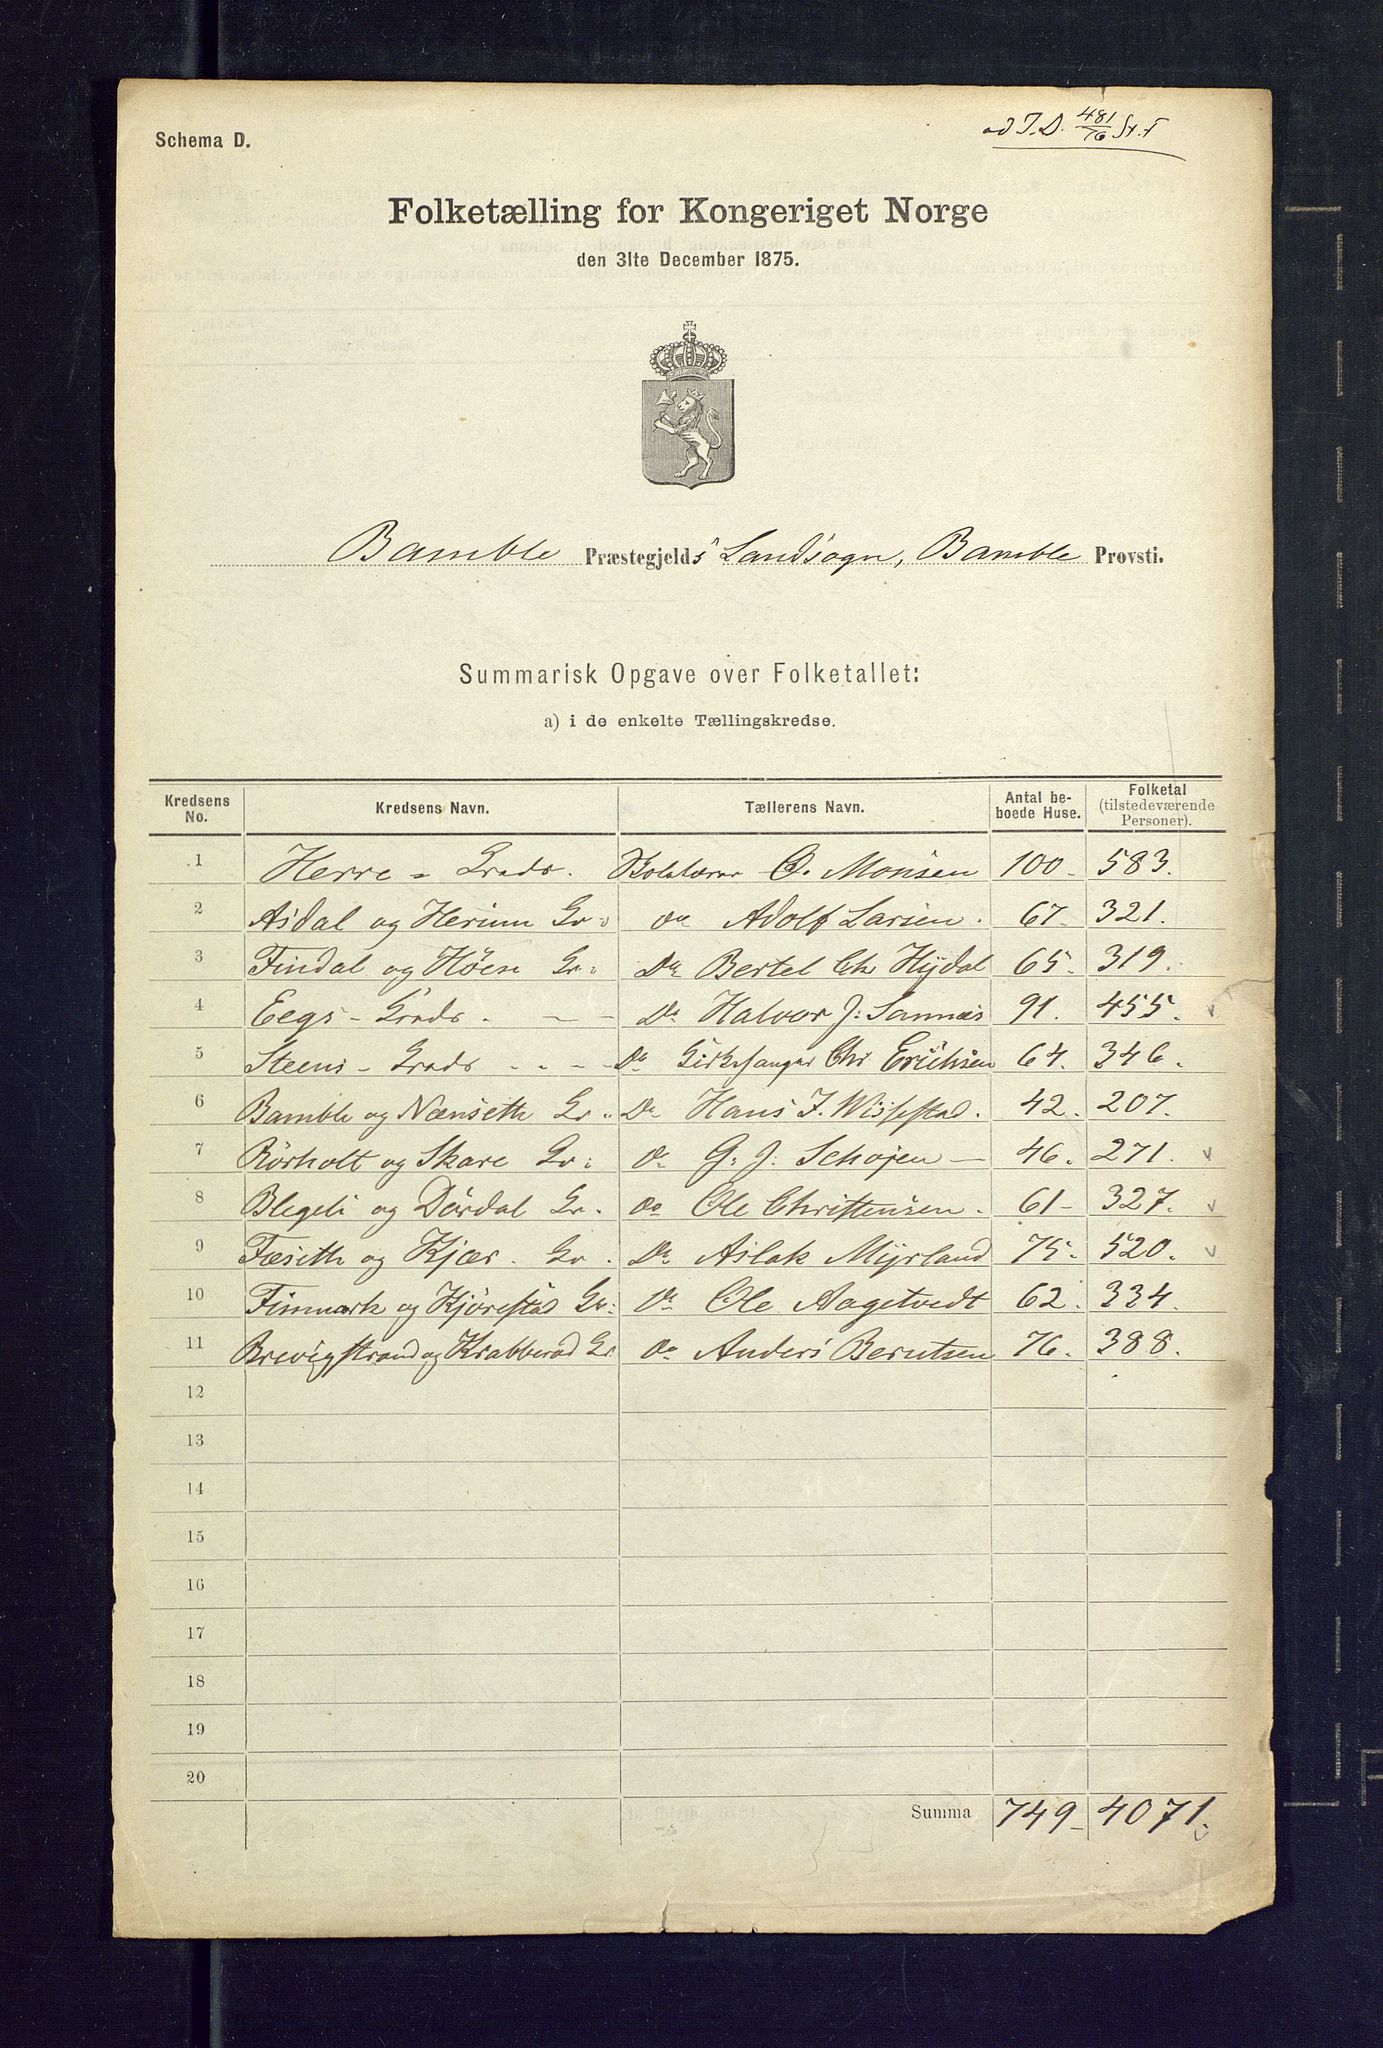 Schema D.
ad I.D. 481/76 St. F
Folketælling for Kongeriget Norge
den 31te December 1875.
Bamble Præstegjelds Landsogn, Bamble Provsti.
Summarisk Opgave over Folketallet:
a) i de enkelte Tællingskredse.
Kredsens No. Kredsens Navn. Tællerens Navn. Antal beboede Huse. Folketal (tilstedeværende Personer).
1 Herre - Kreds. Skolelærer O. Monsen 100 - 583.
2 Asdal og Herum Kr. do Adolf Larsen. 67. 321.
3 Findal og Høen Kr. Do Bertel Chr Hydal 65. 319.
4 Eegs - Kreds. - - Do Halvor J. Sannæs 91. 455.
5 Steens - Kreds - - - Do Kirkesanger Chr Erichsen 64. 346.
6 Bamble og Nænseth Kr. Do Hans J. Wissestad. 42. 207.
7 Rörholt og Skare Kr. do G. J. Schojen - 46. 271.
8 Blegeli og Dördal Kr. do Ole Christensen. 61 - 327.
9 Fæseth og Kjær. Kr. Do Aslak Myrland 75. 520.
10 Finmark og Kjörestad Kr. do Ole Aagetvedt 62. 334.
11 Brevigstrand og Krabberød Kr. do Anders Berntsen 76. 388.
12
13
14
15
16
17
18
19
20
Summa 749 - 4071.